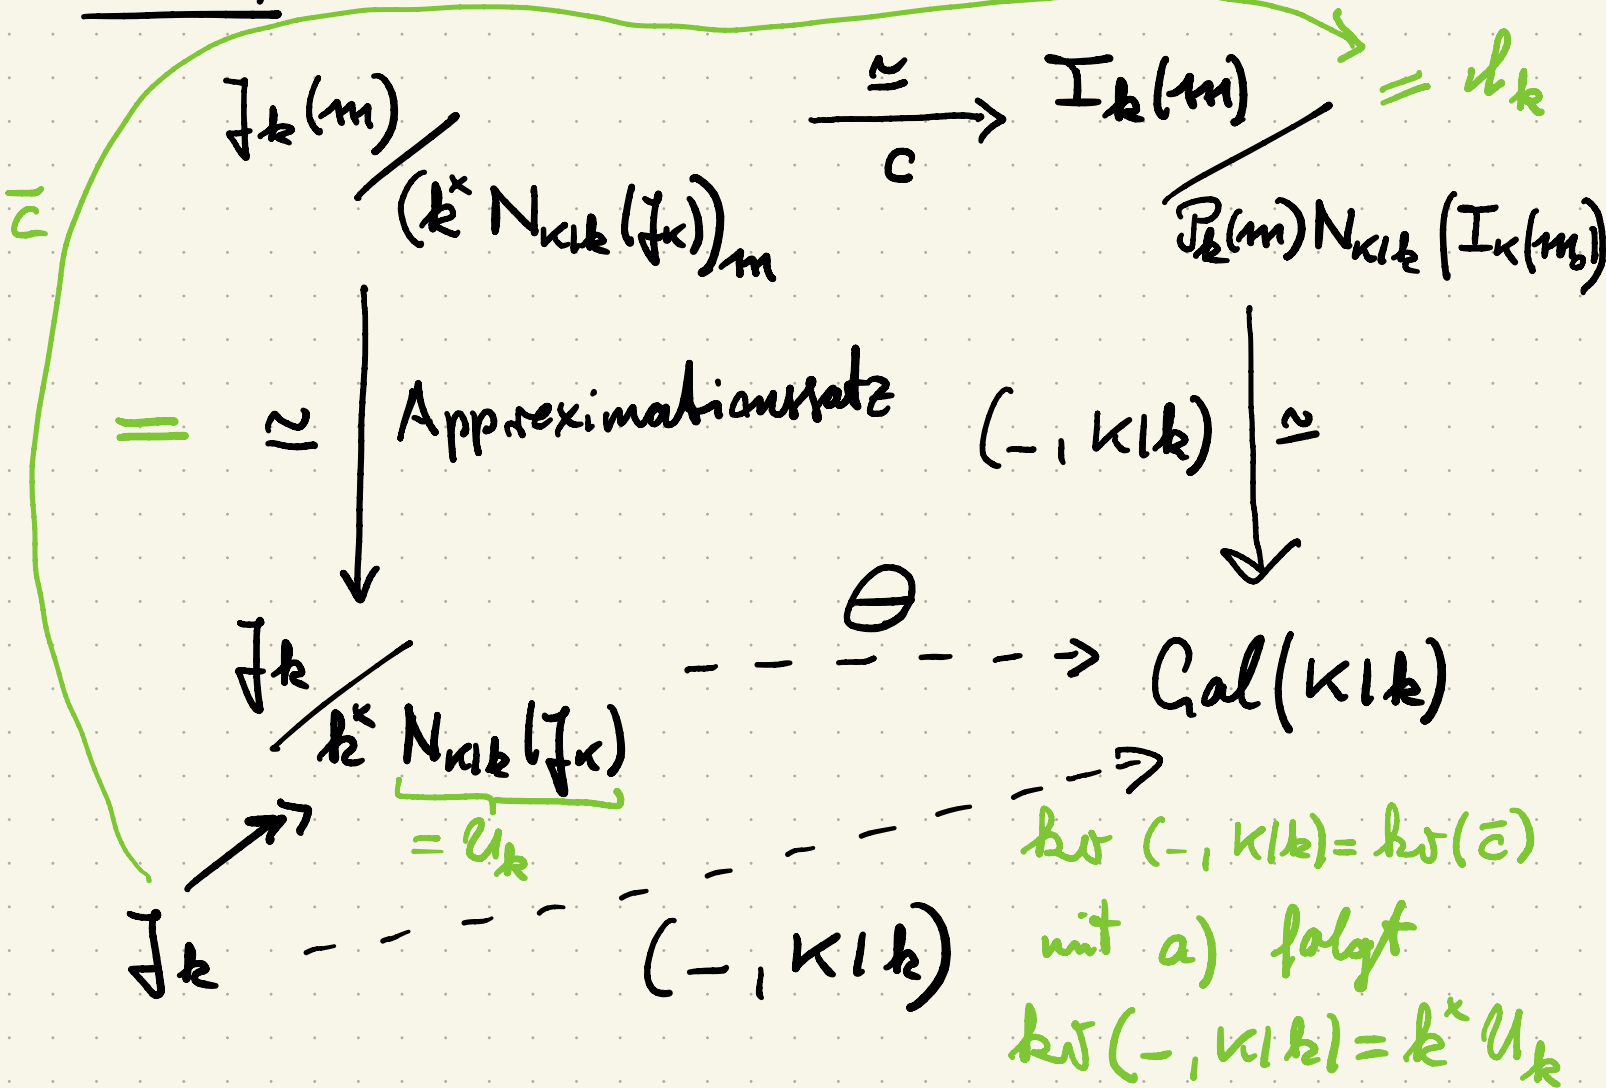 J_k(m) / (k^× N_{K|k}(J_K))_m ≃ c → I_k(m) / P_k(m) N_{K|k}(I_K(m_0)) = Cl_k
c̄
= ≃ Approximationssatz (−, K|k) ≃
J_k / k^× N_{K|k}(J_K) θ Gal(K|k)
= U_k
J_k (−, K|k)
ker (−, K|k) = ker(c̄)
mit a) folgt
ker(−, K|k) = k^× U_k